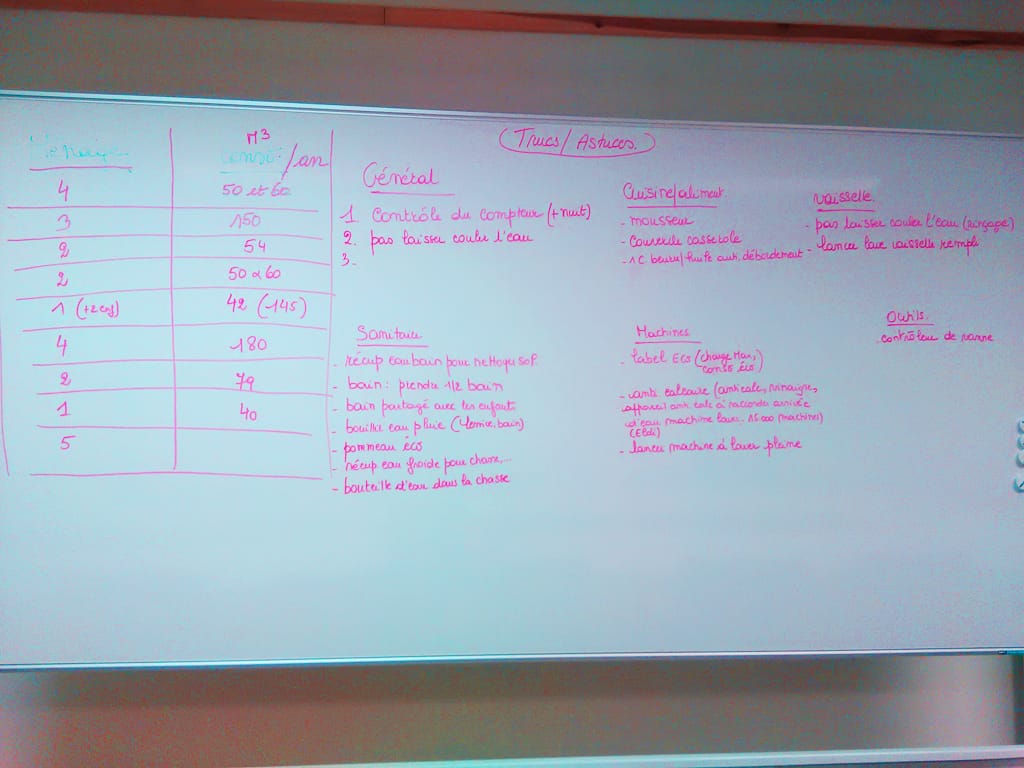 Ménage
M³
conso /an
4 50 et 60
3 150
2 54
2 50 à 60
1 (+2 enf) 42 (145)
4 180
2 79
1 40
5
(Trucs/Astuces.)
Général
1 Contrôle du compteur (+nuit)
2. pas laisser couler l'eau
3.
Cuisine/aliment.
- mousseur
- Couvercle casserole
- 1 C. beurre/huile anti. débordement
vaisselle.
- pas laisser couler l'eau (rinçage)
- lancer lave vaisselle rempli
Sanitaire
- récup eau bain pour nettoyer sol.
- bain: prendre 1/2 bain
- bain partagé avec les enfants
- eau pluie
- pommeau éco
- récup eau froide pour chasse,...
- bouteille d'eau dans la chasse
Machines
- label Eco (charge Max,
conso éco)
- anti calcaire (anticalc, vinaigre,
appareil anti calc à raccorder arrivée
d'eau machine laver. 15.000 machines)
- lancer machine à laver pleine
Outils.
. contrôleur de vanne